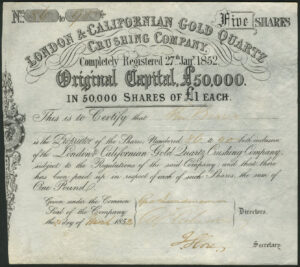 No.
Five SHARES
LONDON & CALIFORNIAN GOLD QUARTZ
CRUSHING COMPANY.
Completely Registered 27th Jany. 1852.
Original Capital, £50,000.
IN 50,000 SHARES OF £1 EACH.
This is to Certify that
is the Proprietor of the Shares Numbered to both inclusive
of the London and Californian Gold Quartz Crushing Company,
subject to the Regulations of the said Company and that there
has been paid up in respect of each of such Shares, the sum of
One Pound.
Given under the Common
Seal of the Company
the day of 185
Directors.
Secretary.